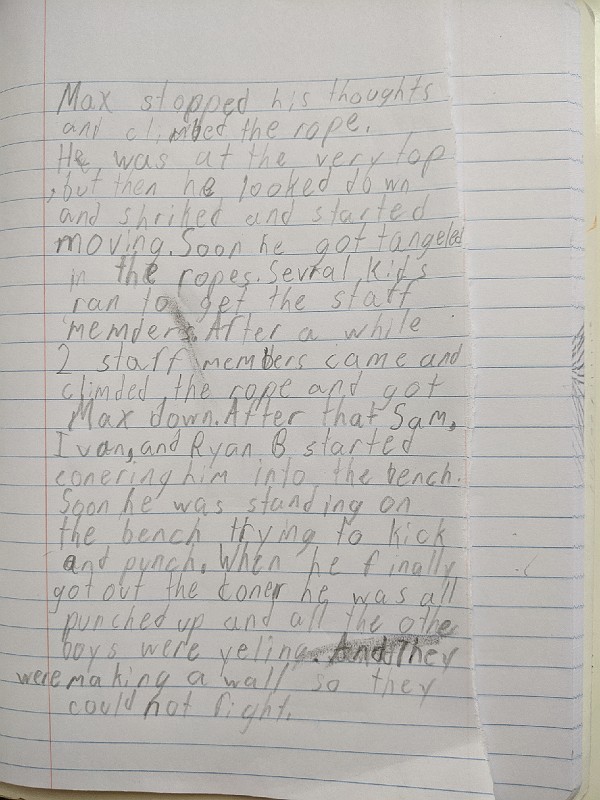 Max stopped his thoughts
and climbed the rope.
He was at the very top
,but then he looked down
and shriked and started
moving. Soon he got tangeled
in the ropes. Sevral kids
ran to get the staff
memders. After a while
2 staff members came and
climded the rope and got
Max down. After that Sam,
Ivan, and Ryan B started
conering him into the bench.
Soon he was standing on
the bench trying to kick
and punch. When he finally
got out the coner he was all
punched up and all the other
boys were yeling. And They
were making a wall so they
could not fight.